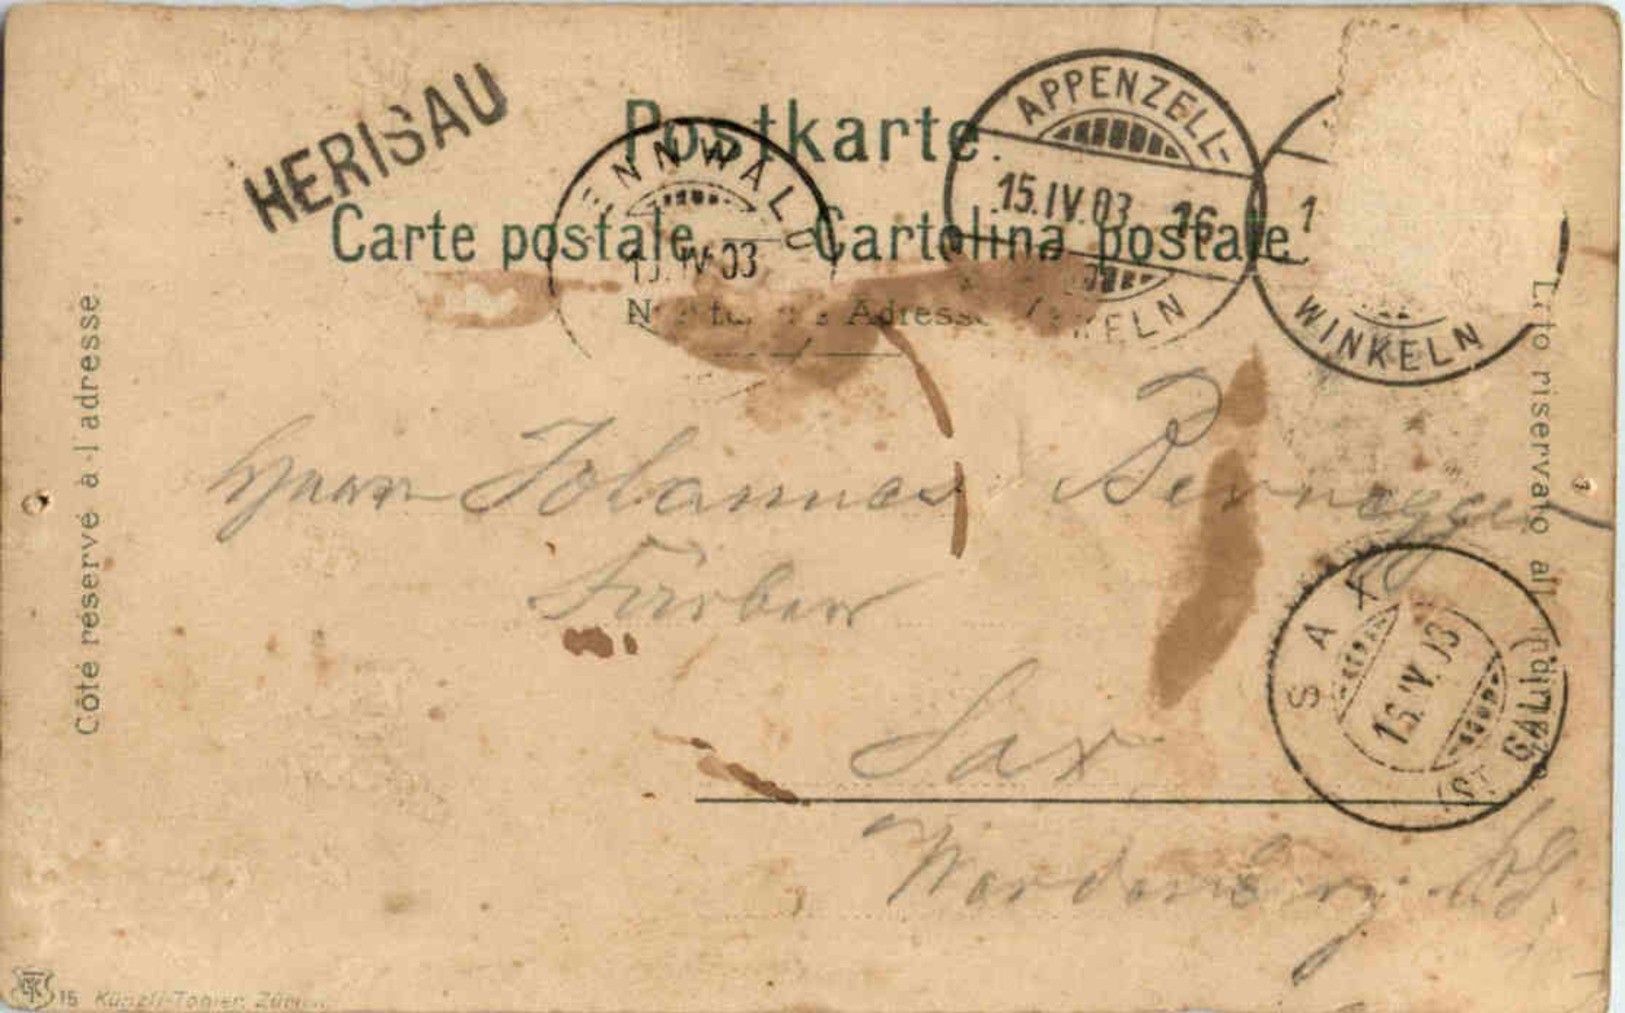 HERISAU
Postkarte.
APPENZELL-
15.IV.03 16
WINKELN
ENNWALD
IV 03
Carte postale. Cartolina postale.
Adresse
Côté réservé à l'adresse.
Lato riservato all'
Herrn Johannes Bernegger
Färber
SAX
16.IV.03
(ST. GALLEN)
Sax
Werdenberg
15 Künzli-Tobler, Zürich